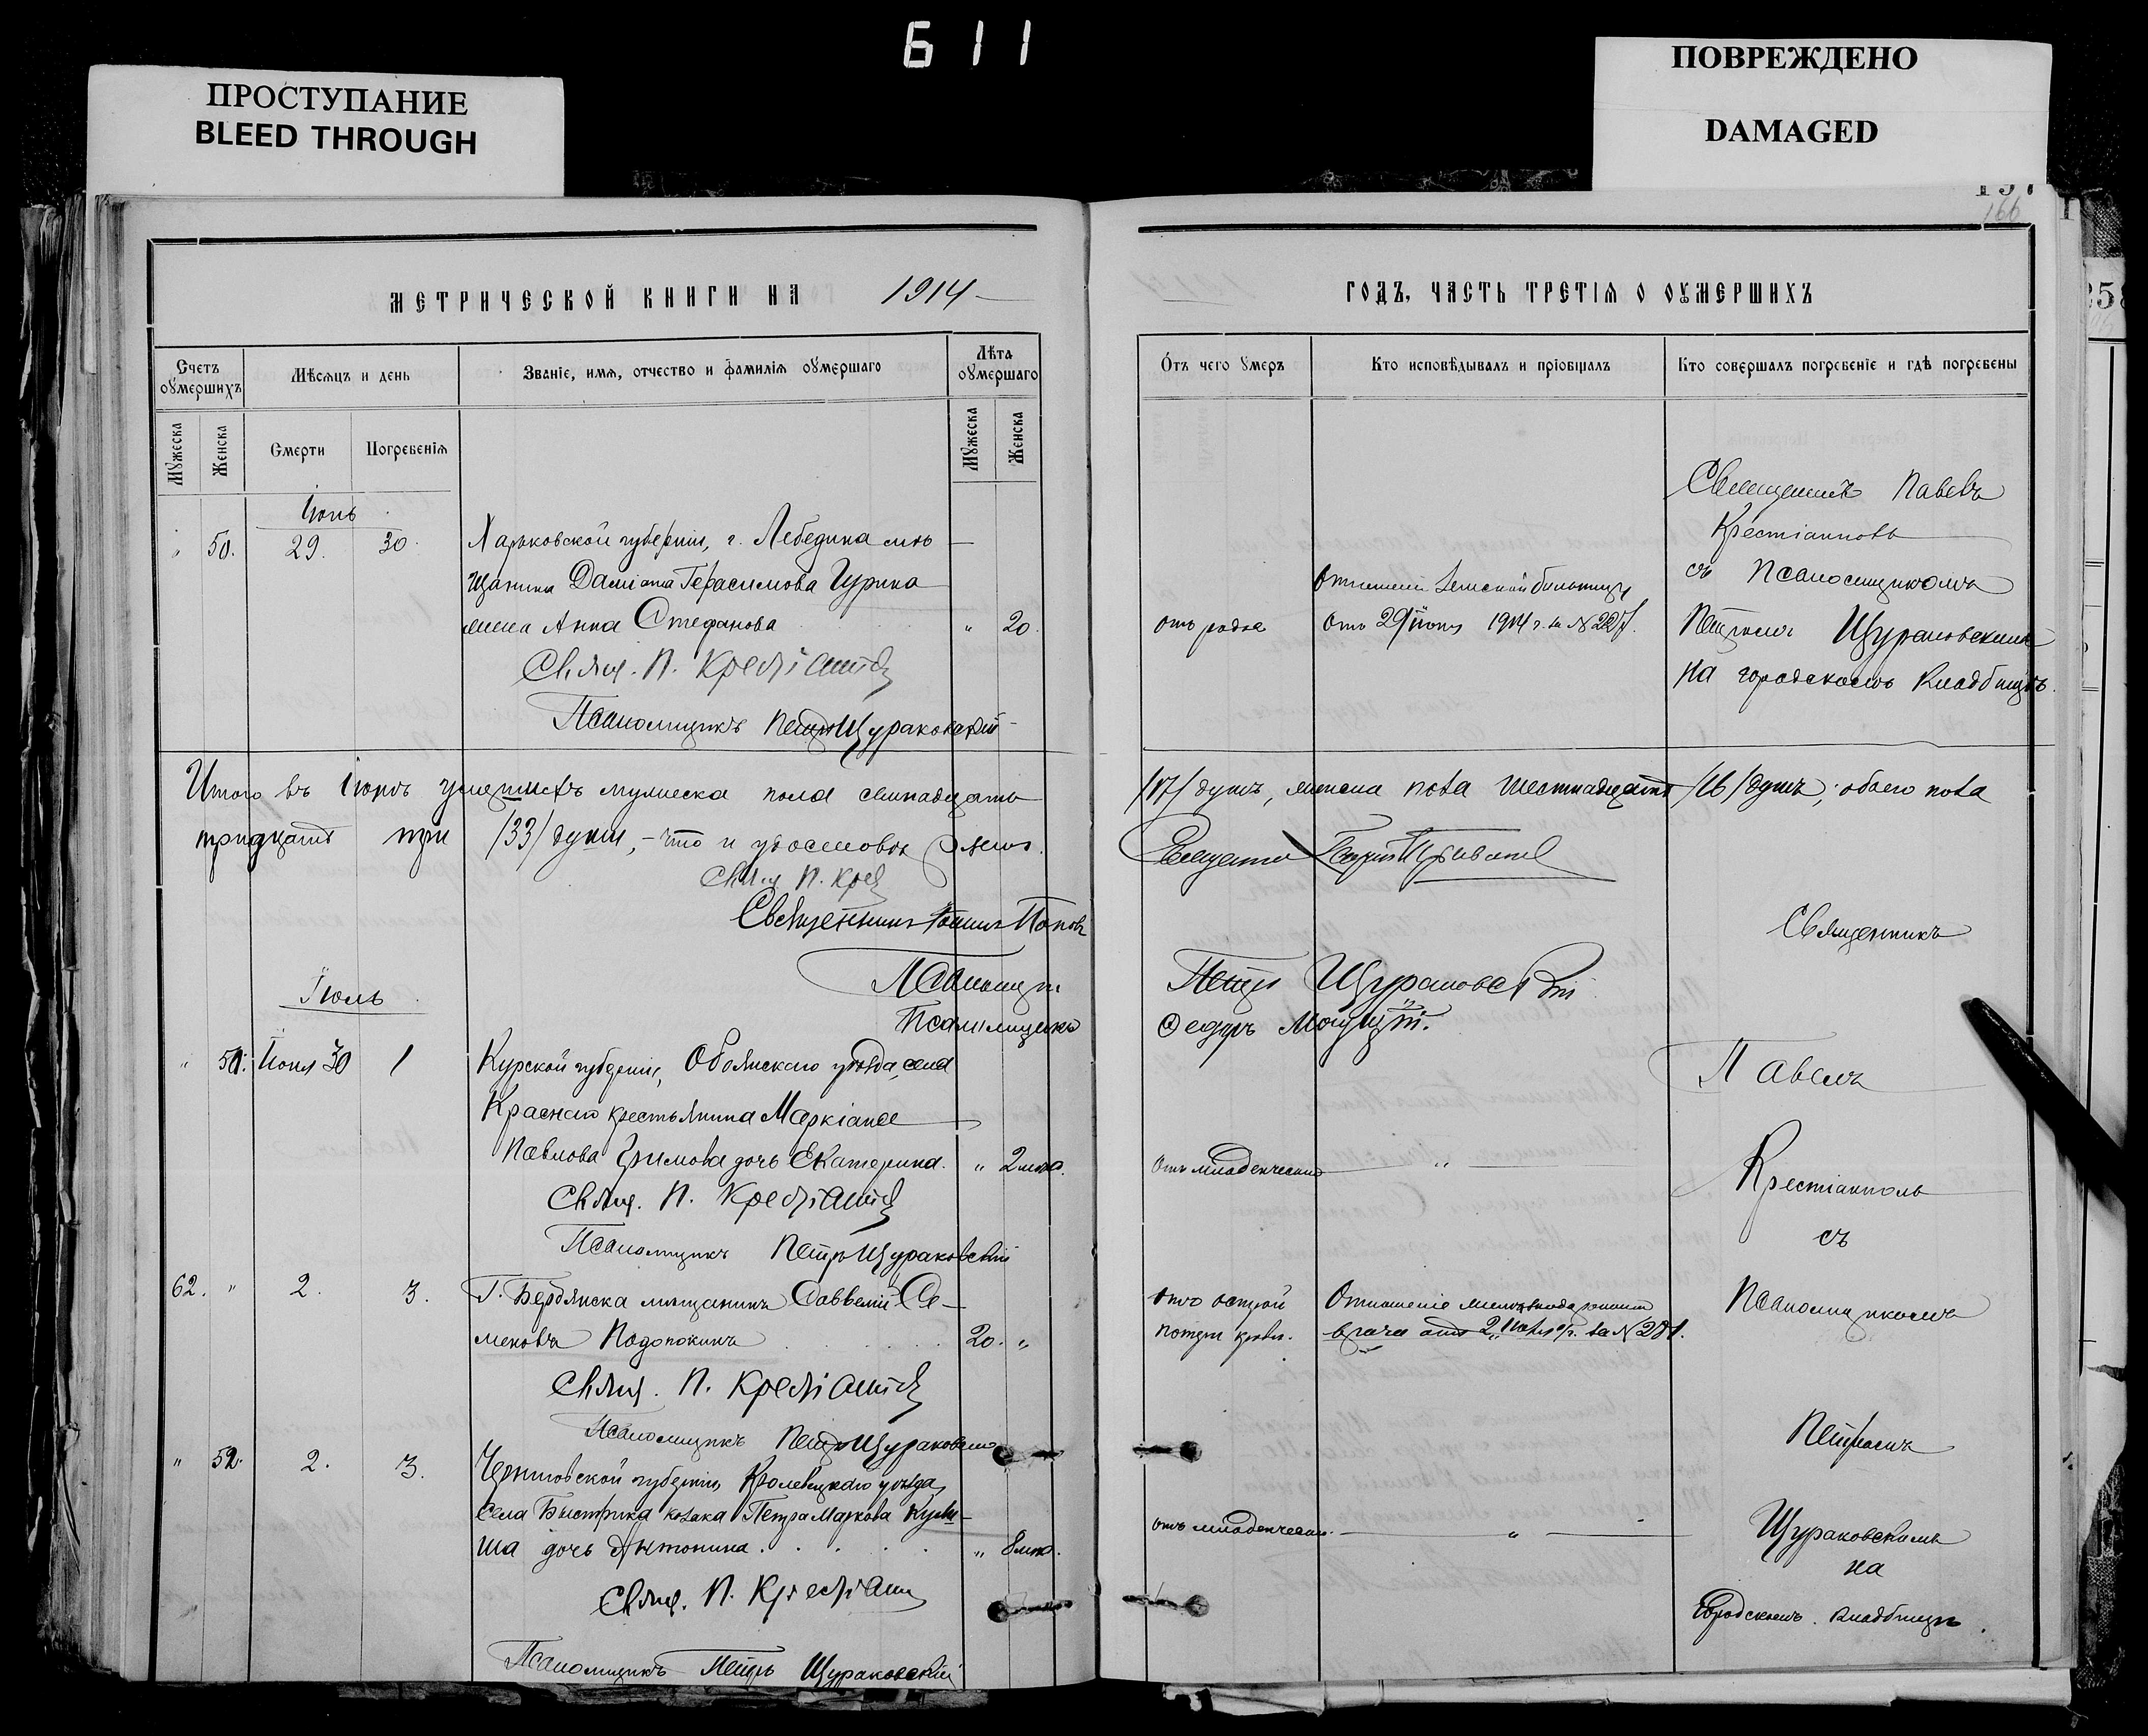 611
ПРОСТУПАНИЕ
BLEED THROUGH
ПОВРЕЖДЕНО
DAMAGED
166
МЕТРИЧЕСКОЙ КНИГИ НА 1914
Счетъ оумершихъ
Мѣсяцъ и день
Званіе, имя, отчество и фамилія оумершаго
Лѣта оумершаго
Мужеска
Женска
Смерти
Погребенія
Мужеска
Женска
Іюнь
" 50. 29. 30.
Харьковской губерніи, г. Лебедина мѣ
щанина Даміана Герасимова Цурика
жена Анна Стефанова " 20.
Свящ. П. Крестіанповъ
Псаломщикъ Петръ Щураковскій
Итого въ Іюнѣ умершихъ мужеска пола семнадцать
тридцать три /33/ души, - что и удостовѣряемъ.
Свящ П. Крес
Священникъ Іоаннъ Поповъ
Псаломщи
Псаломщикъ
Іюль
" 51. Іюня 30 1
Курской губерніи, Обоянскаго уѣзда, села
Краснаго крестьянина Маркіана
Павлова дочь Екатерина. " 2 мѣс.
Свящ. П. Крестіанповъ
Псаломщикъ Петръ Щураковскій
62. " 2. 3.
Г. Бердянска мѣщанинъ Савелій Се-
меновъ 20. "
Свящ. П. Крестіанповъ
Псаломщикъ Петръ Щураковскій
" 52. 2. 3.
Черниговской губерніи, Кролевецкаго уѣзда,
села Быстрика козака Петра Маркова
ша дочь Антонина. " 8 мѣс.
Свящ. П. Крестіанп
Псаломщикъ Петръ Щураковскій
ГОДЪ, ЧАСТЬ ТРЕТІЯ О ОУМЕРШИХЪ
Отъ чего умеръ
Кто исповѣдывалъ и пріобщалъ
Кто совершалъ погребеніе и гдѣ погребены
Священникъ Павелъ
Крестіанповъ
съ Псаломщикомъ
Петромъ Щураковскимъ
на городскомъ кладбищѣ.
отъ родов
Отношеніе Земской больницы
отъ 29 іюня 1914 г. за №
/17/ душъ, женска пола шестнадцать /16/ душъ, обоего пола
Священникъ
Священникъ
Петръ Щураковскій
Ѳедоръ
Павелъ
отъ младенческой "
Крестіанповъ
съ
отъ острой
потери крови.
Отношеніе
врача отъ 2 Іюля с/г. за № 281.
Псаломщикомъ
Петромъ
отъ младенческой. "
Щураковскимъ
на
городскомъ кладбищѣ.